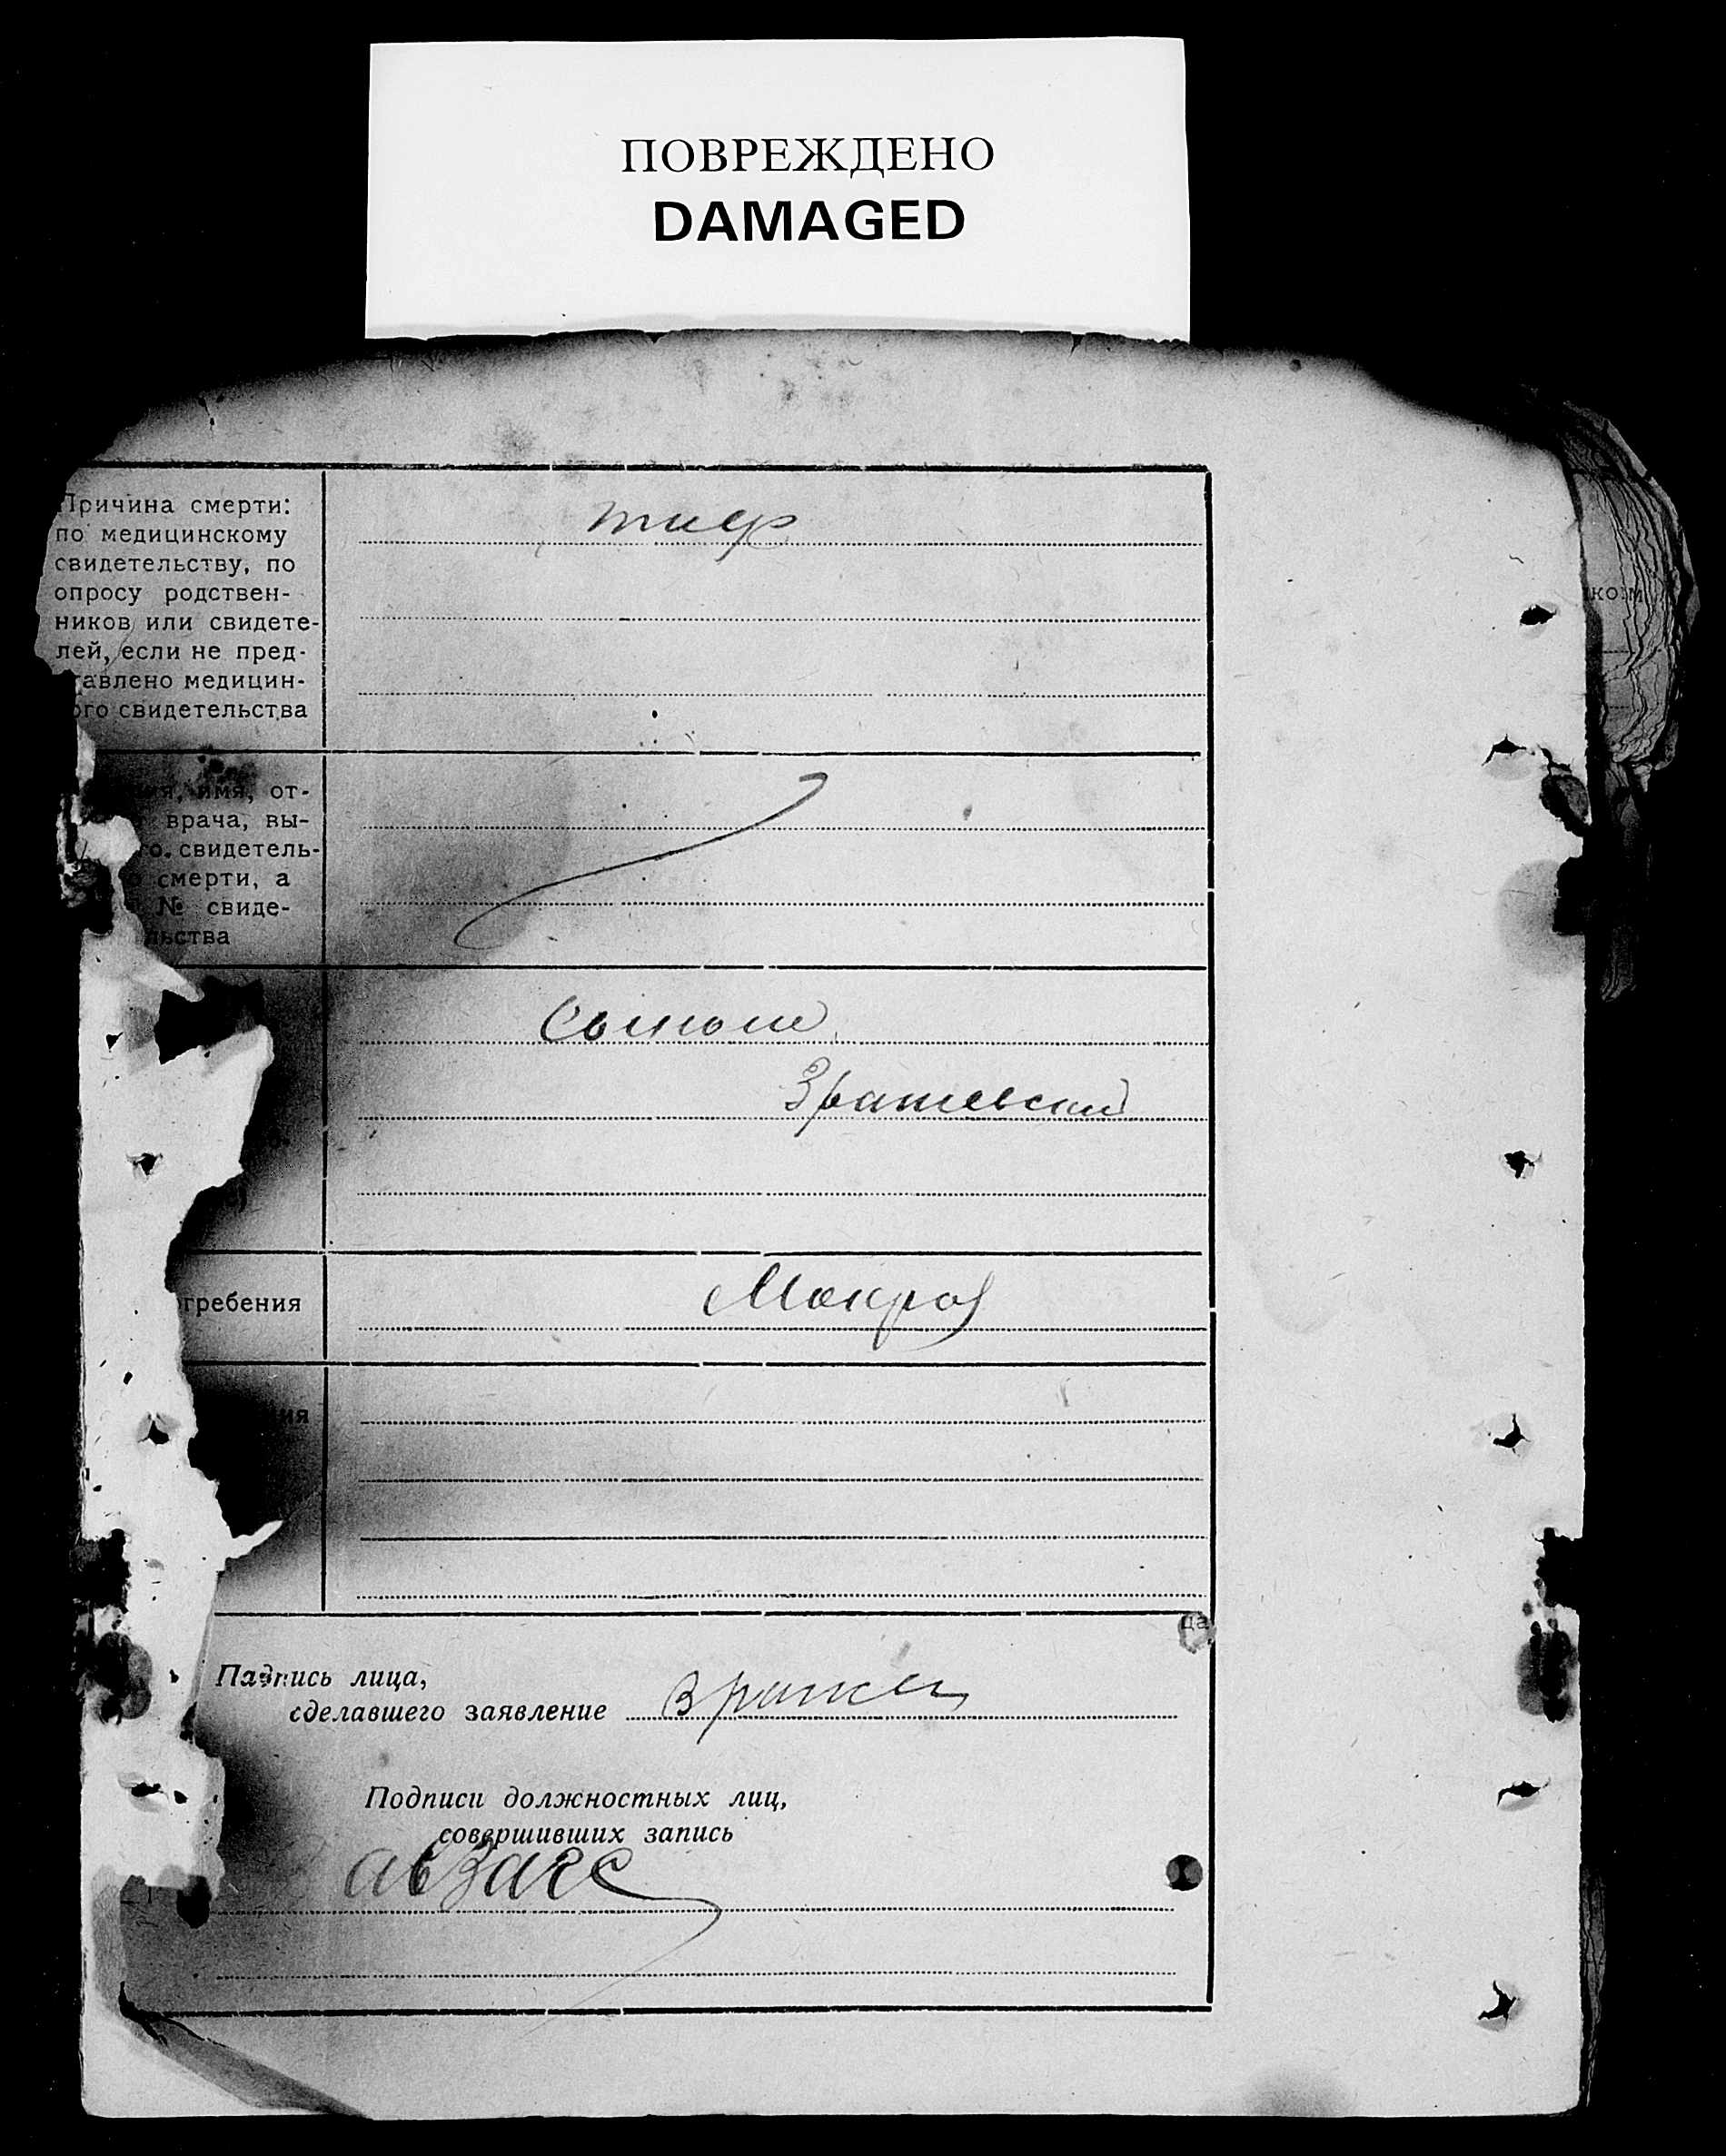 ПОВРЕЖДЕНО
DAMAGED
Причина смерти:
по медицинскому
свидетельству, по
опросу родствен-
ников или свидете-
лей, если не пред-
тавлено медицин-
ого свидетельства
тиф
я, имя, от-
врача, вы-
го свидетель-
смерти, а
№ свиде-
льства
гребения
ия
Подпись лица,
сделавшего заявление
Подписи должностных лиц,
совершивших запись
ком
ца